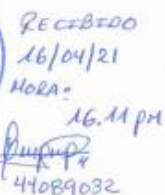 RECIBIDO
16/04/21
HORA:
16.11 pm
44089032